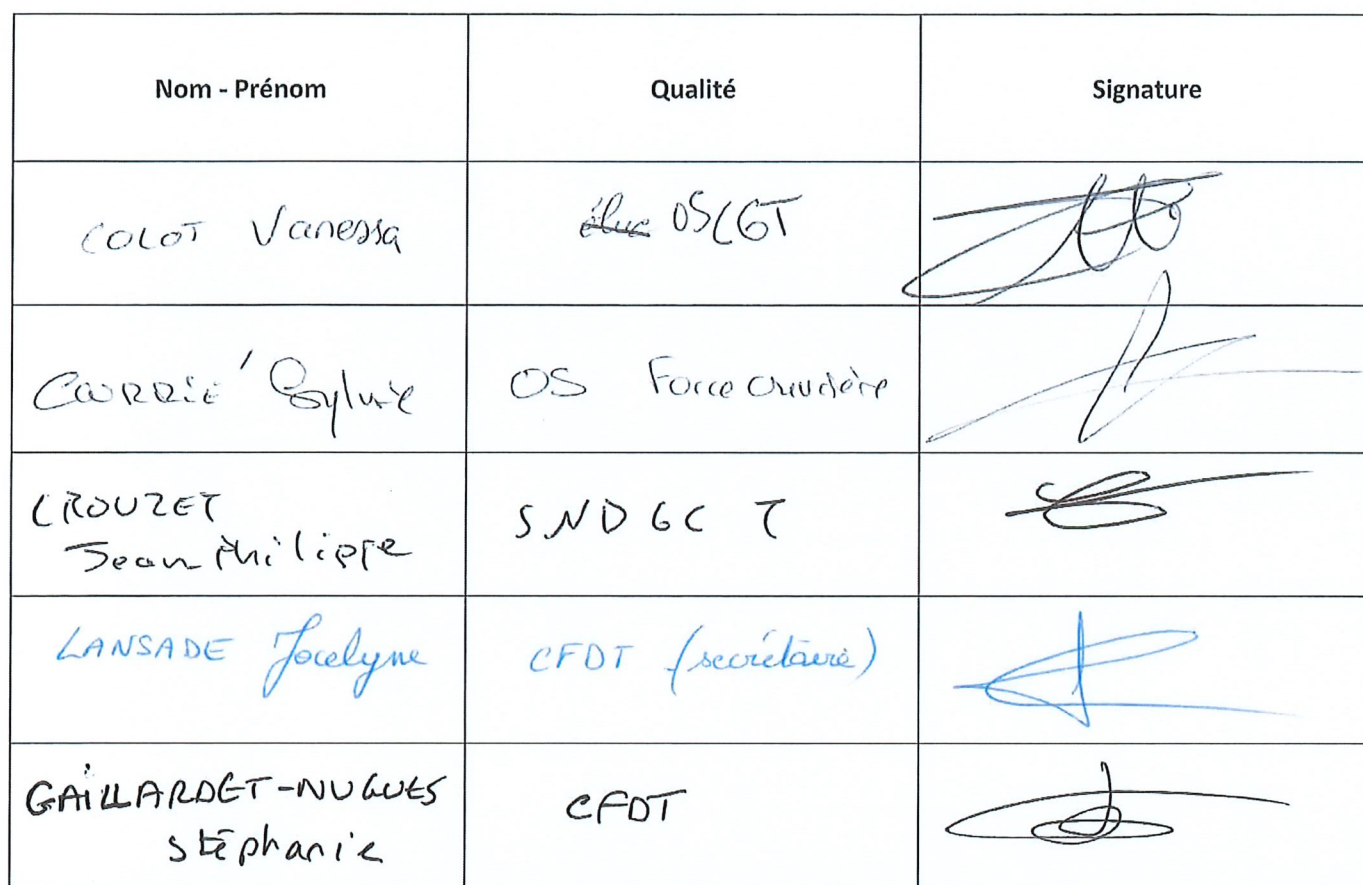 Nom - Prénom Qualité Signature
COLOT Vanessa élue OSCGT
CARRIÉ Sylvie OS Force Ouvrière
CROUZET
Jean Philippe SNDGCT
LANSADE Jocelyne CFDT (secrétaire)
GAILLARDET-NUGUES
Stéphanie CFDT